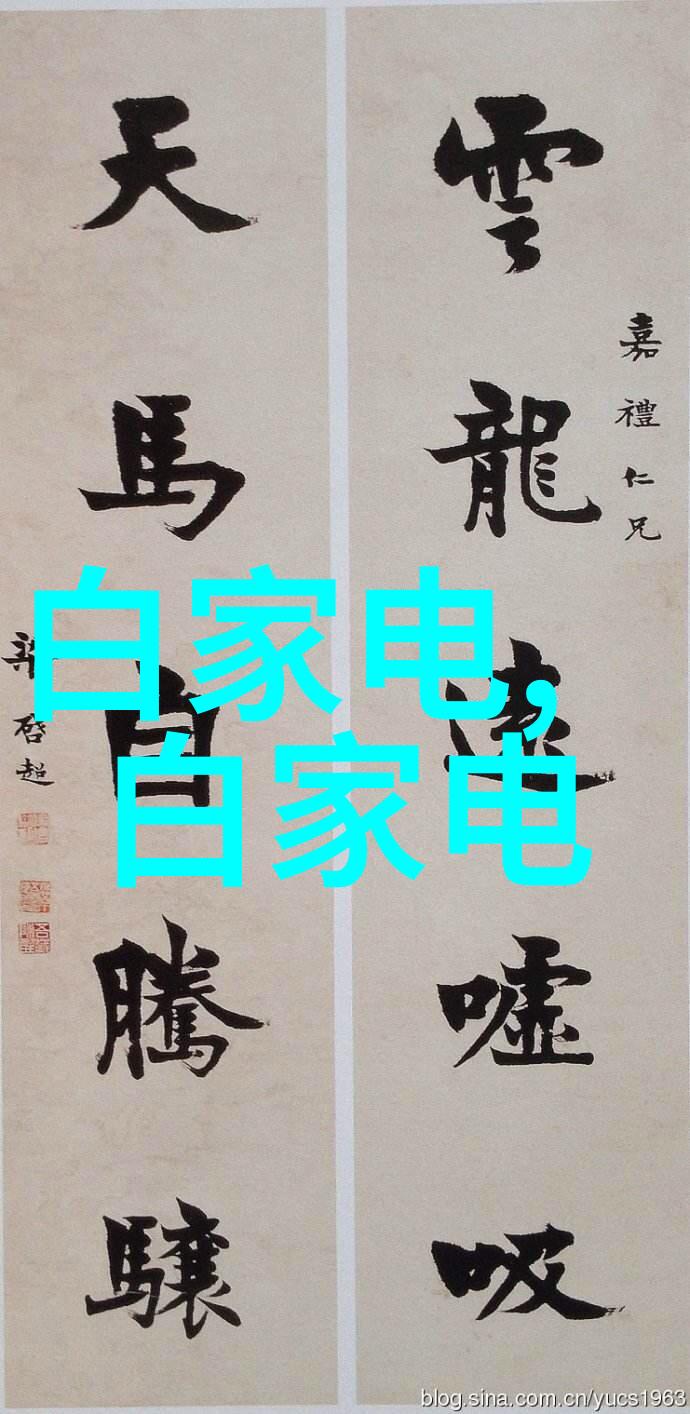 雲龍遠噓吸
嘉禮仁兄
天馬自騰驤
梁啓超
白家电,
白家电
blog.sina.com.cn/yucs1963